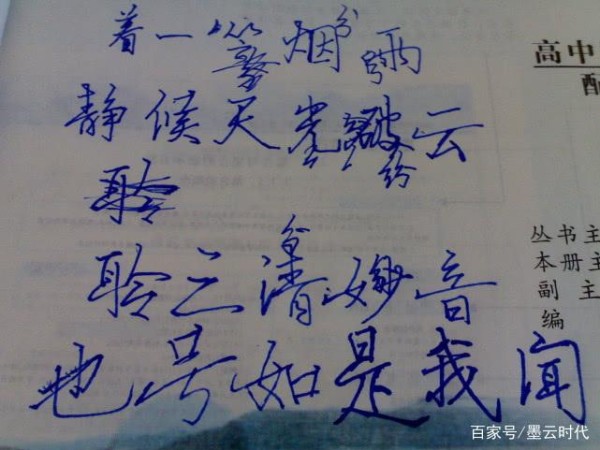 着一烟雨
静候天光破云
聆
聆三清妙音
也号如是我闻
高中
配
丛书主
本册主
副 主
编
百家号/墨云时代